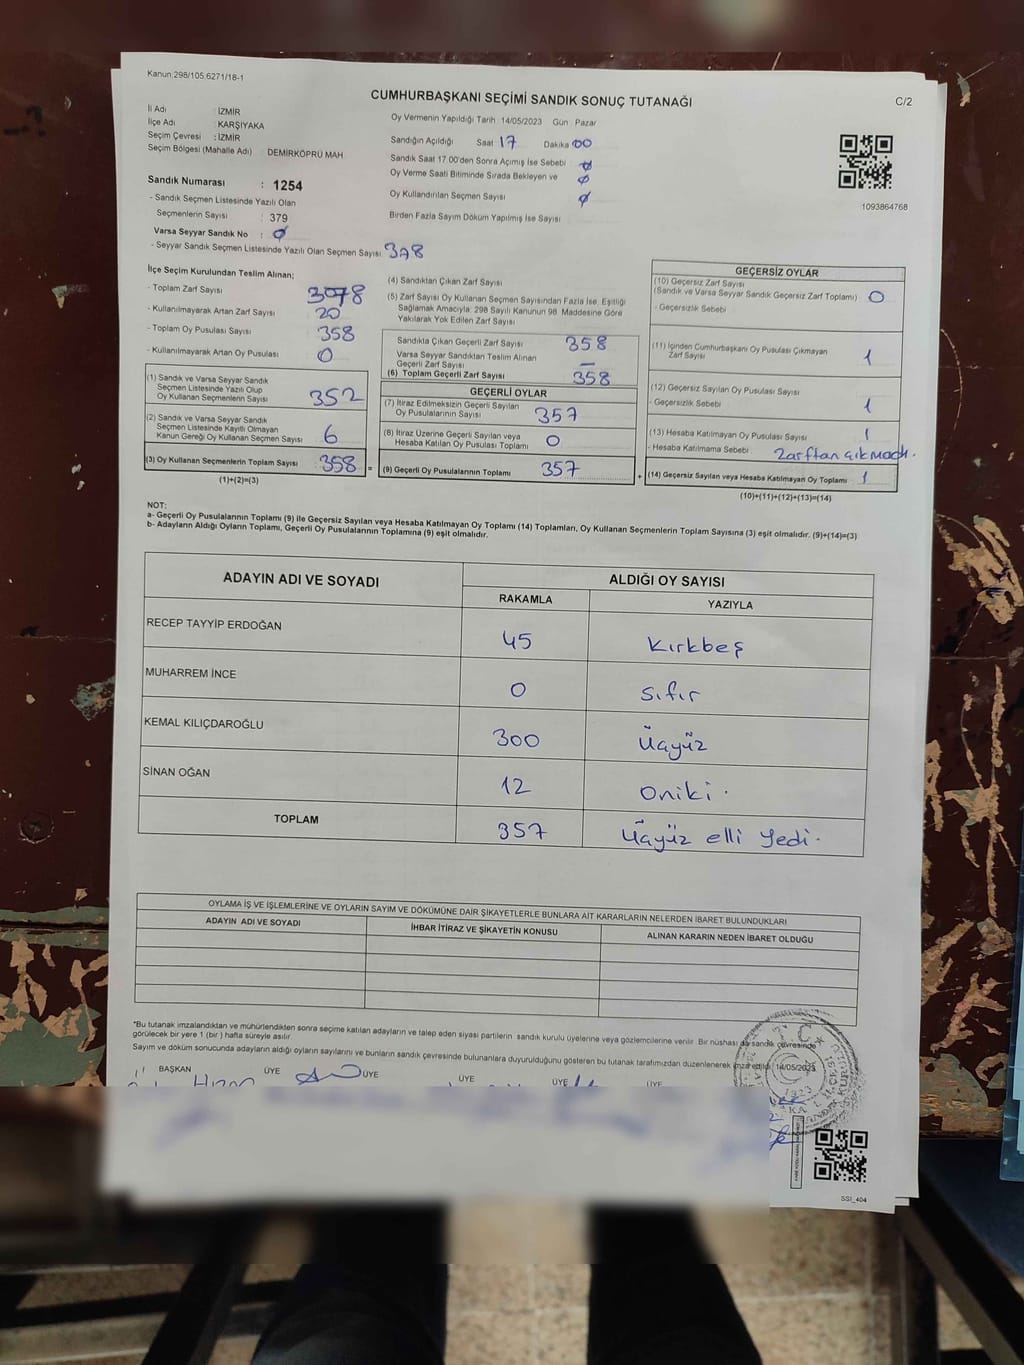 Kanun:298/105.6271/18-1
CUMHURBAŞKANI SEÇİMİ SANDIK SONUÇ TUTANAĞI
C/2
İl Adı : İZMİR
İlçe Adı : KARŞIYAKA
Seçim Çevresi : İZMİR
Seçim Bölgesi (Mahalle Adı) DEMİRKÖPRÜ MAH.
Oy Vermenin Yapıldığı Tarih 14/05/2023 Gün Pazar
Sandığın Açıldığı Saat 17 Dakika 00
Sandık Saat 17.00'den Sonra Açımış İse Sebebi ø
Oy Verme Saati Bitiminde Sırada Bekleyen ve ø
Oy Kullandırılan Seçmen Sayısı ø
Birden Fazla Sayım Döküm Yapılmış İse Sayısı
1093864768
Sandık Numarası : 1254
- Sandık Seçmen Listesinde Yazılı Olan
Seçmenlerin Sayısı : 379
Varsa Seyyar Sandık No : ø
- Seyyar Sandık Seçmen Listesinde Yazılı Olan Seçmen Sayısı 378
İlçe Seçim Kurulundan Teslim Alınan;
- Toplam Zarf Sayısı
- Kullanılmayarak Artan Zarf Sayısı 20
- Toplam Oy Pusulası Sayısı 358
- Kullanılmayarak Artan Oy Pusulası 0
(1) Sandık ve Varsa Seyyar Sandık
Seçmen Listesinde Yazılı Olup
Oy Kullanan Seçmenlerin Sayısı 352
(2) Sandık ve Varsa Seyyar Sandık
Seçmen Listesinde Kayıtlı Olmayan
Kanun Gereği Oy Kullanan Seçmen Sayısı 6
(3) Oy Kullanan Seçmenlerin Toplam Sayısı 358
(1)+(2)=(3)
(4) Sandıktan Çıkan Zarf Sayısı
(5) Zarf Sayısı Oy Kullanan Seçmen Sayısından Fazla İse, Eşitliği
Sağlamak Amacıyla; 298 Sayılı Kanunun 98. Maddesine Göre
Yakılarak Yok Edilen Zarf Sayısı
Sandıkla Çıkan Geçerli Zarf Sayısı 358
Varsa Seyyar Sandıktan Teslim Alınan
Geçerli Zarf Sayısı –
(6) Toplam Geçerli Zarf Sayısı 358
GEÇERLİ OYLAR
(7) İtiraz Edilmeksizin Geçerli Sayılan
Oy Pusulalarının Sayısı 357
(8) İtiraz Üzerine Geçerli Sayılan veya
Hesaba Katılan Oy Pusulası Toplamı 0
= (9) Geçerli Oy Pusulalarının Toplamı 357
GEÇERSİZ OYLAR
(10) Geçersiz Zarf Sayısı
(Sandık ve Varsa Seyyar Sandık Geçersiz Zarf Toplamı) 0
- Geçersizlik Sebebi
(11) İçinden Cumhurbaşkanı Oy Pusulası Çıkmayan
Zarf Sayısı 1
(12) Geçersiz Sayılan Oy Pusulası Sayısı
- Geçersizlik Sebebi 1
(13) Hesaba Katılmayan Oy Pusulası Sayısı 1
- Hesaba Katılmama Sebebi Zarftan çıkmadı.
+ (14) Geçersiz Sayılan veya Hesaba Katılmayan Oy Toplamı 1
(10)+(11)+(12)+(13)=(14)
NOT:
a- Geçerli Oy Pusulalarının Toplamı (9) ile Geçersiz Sayılan veya Hesaba Katılmayan Oy Toplamı (14) Toplamları, Oy Kullanan Seçmenlerin Toplam Sayısına (3) eşit olmalıdır. (9)+(14)=(3)
b- Adayların Aldığı Oyların Toplamı, Geçerli Oy Pusulalarının Toplamına (9) eşit olmalıdır.
ADAYIN ADI VE SOYADI ALDIĞI OY SAYISI
RAKAMLA YAZIYLA
RECEP TAYYİP ERDOĞAN 45 Kırkbeş
MUHARREM İNCE 0 Sıfır
KEMAL KILIÇDAROĞLU 300 Üçyüz
SİNAN OĞAN 12 Oniki.
TOPLAM 357 Üçyüz elli yedi.
OYLAMA İŞ VE İŞLEMLERİNE VE OYLARIN SAYIM VE DÖKÜMÜNE DAİR ŞİKAYETLERLE BUNLARA AİT KARARLARIN NELERDEN İBARET BULUNDUKLARI
ADAYIN ADI VE SOYADI İHBAR İTİRAZ VE ŞİKAYETİN KONUSU ALINAN KARARIN NEDEN İBARET OLDUĞU
*Bu tutanak imzalandıktan ve mühürlendikten sonra seçime katılan adayların ve talep eden siyasi partilerin sandık kurulu üyelerine veya gözlemcilerine verilir. Bir nüshası da sandık çevresinde
görülecek bir yere 1 (bir) hafta süreyle asılır.
Sayım ve döküm sonucunda adayların aldığı oyların sayılarını ve bunların sandık çevresinde bulunanlara duyurulduğunu gösteren bu tutanak tarafımızdan düzenlenerek imza edildi. 14/05/2023
BAŞKAN ÜYE ÜYE ÜYE ÜYE ÜYE
T.C.
1923
SSI_404